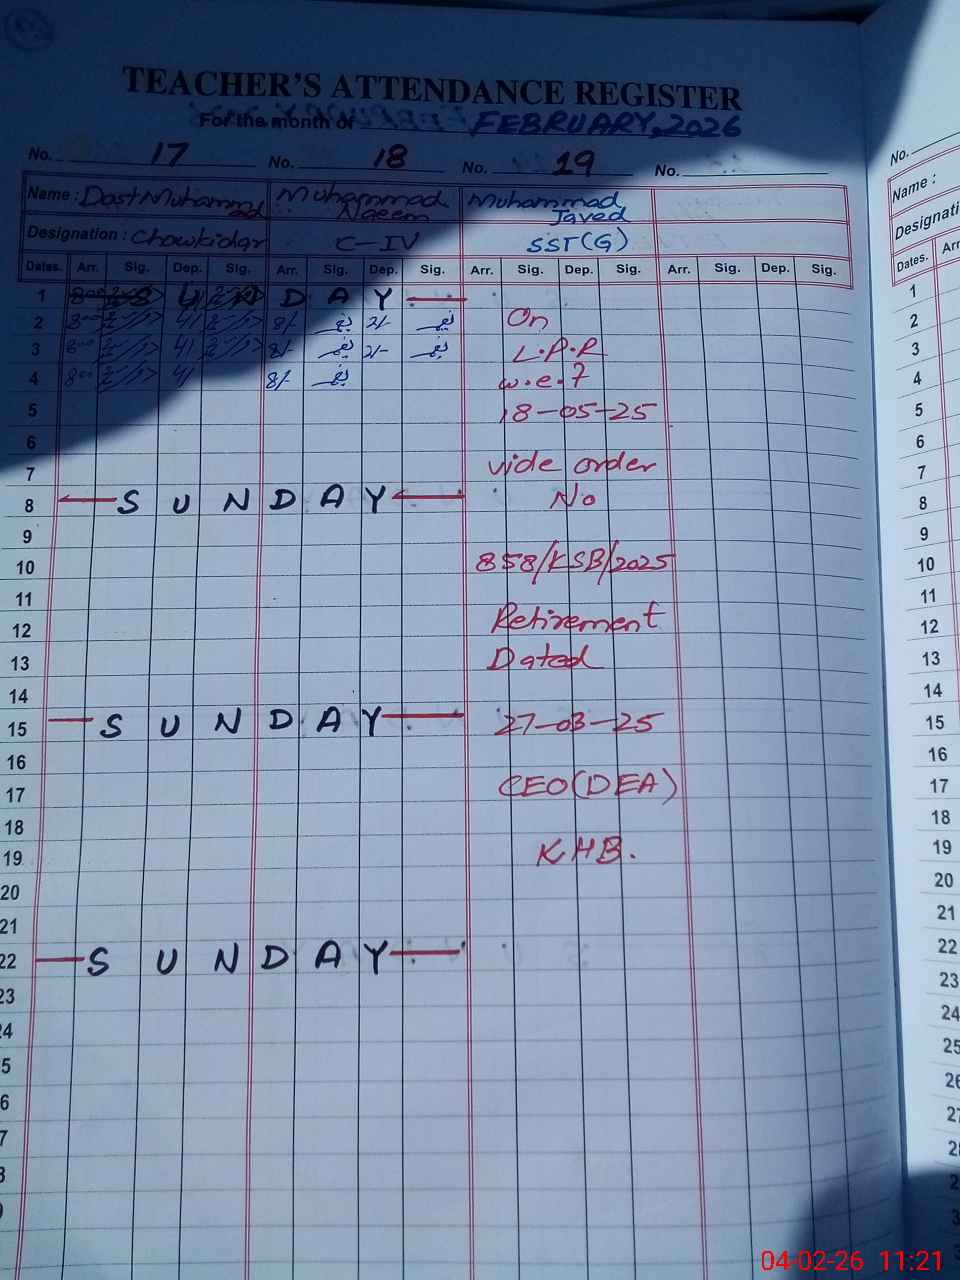 TEACHER'S ATTENDANCE REGISTER
For the month of FEBRUARY, 2026
No. 17 No. 18 No. 19 No.
Name : Dost Muhammad Muhammad Naeem Muhammad Javed
Designation : Chowkidar C-IV SST(G)
Dates. Arr. Sig. Dep. Sig. Arr. Sig. Dep. Sig. Arr. Sig. Dep. Sig. Arr. Sig. Dep. Sig.
1 D A Y
2 8°° 4/ 8/- 2/- On
3 8°° 4/ 8/- 2/- L.P.R
4 8°° 4/ 8/- w.e.f
5 18-05-25
6
7 vide order
8 S U N D A Y No
9
10 858/KSB/2025
11
12 Retirement
13 Dated
14
15 S U N D A Y 27-03-25
16
17 CEO(DEA)
18
19 KHB.
20
21
22 S U N D A Y
23
24
No.
Name :
Dates.
1
2
3
4
5
6
7
8
9
10
11
12
13
14
15
16
17
18
19
20
21
22
23
24
25
26
04-02-26 11:21